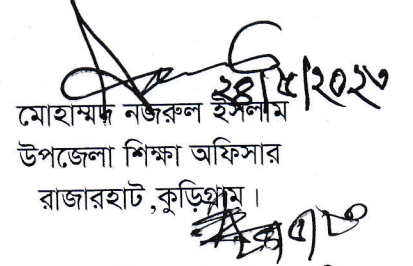 ২৪/৫/২০২৩
মোহাম্মদ নজরুল ইসলাম
উপজেলা শিক্ষা অফিসার
রাজারহাট ,কুড়িগ্রাম।